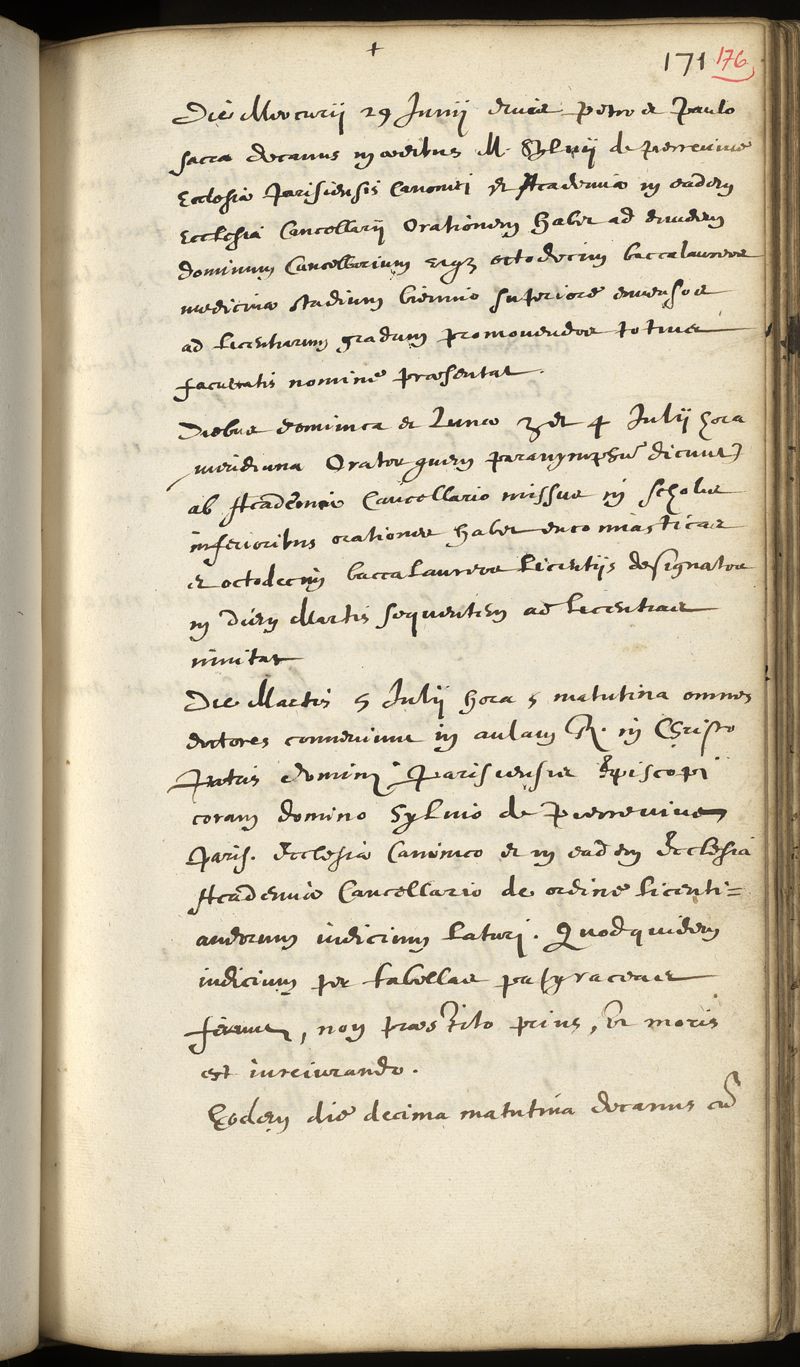 +
171 176
Die Mercurij 29 Junij divis Petro et Paulo
sacra decanus in ædibus M. Sylvij de pierrevive
Ecclesiæ Parisiensis Canonici et Academiæ in eadem
Ecclesia Cancellarij Orationem habet ad eundem
dominum Cancellarium eique octodecim baccalaureos
medicinæ stadium biennio superiore emensos
ad licentiarum gradum promovendos totius
facultatis nomine præsentat.
Diebus dominica et Lunæ 3 et 4 Julij hora
meridiana Orator quem paranymphū dicunt
ab Academiæ Cancellario missus in scholis
inferioribus orationes habet encomiasticas
et octodecim baccalaureos licentijs designatos
in diem Martis sequentem ad licentias
invitat
Die Martis 5 Julij hora 5 matutina omnes
doctores conveniunt in aulam R. in Christo
Patris domini Parisiensis Episcopi
coram domino Sylvio de Pierrevive
Paris. Ecclesiæ Canonico et in eadem Ecclesia
Academiæ Cancellario de ordine licenti=
andorum iudicium laturi. Quod quidem
iudicium per tabellas papyraceas
ferunt, non præstito prius, ut moris
est iureiurando.
Eodem die decima matutina decanus cū